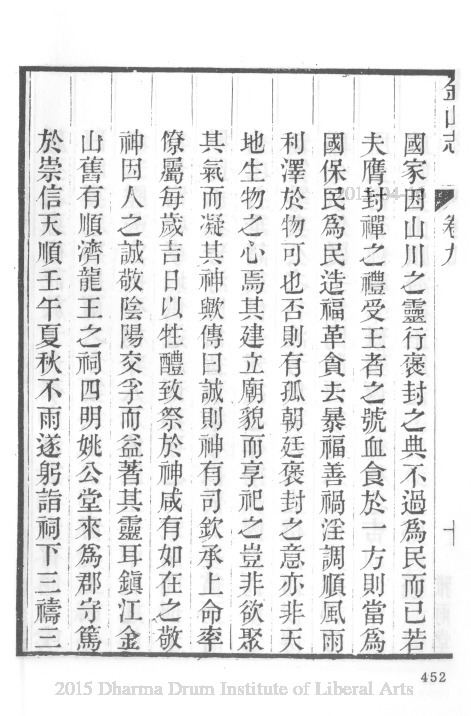 金山志 卷九 十
國家因山川之靈行褒封之典不過爲民而已若
夫膺封禪之禮受王者之號血食於一方則當爲
國保民爲民造福革貪去暴福善禍淫調順風雨
利澤於物可也否則有孤朝廷褒封之意亦非天
地生物之心焉其建立廟貌而享祀之豈非欲聚
其氣而凝其神歟傳曰誠則神有司欽承上命率
僚屬每歲吉日以牲醴致祭於神咸有如在之敬
神因人之誠敬陰陽交孚而益著其靈耳鎮江金
山舊有順濟龍王之祠四明姚公堂來爲郡守篤
於崇信天順壬午夏秋不雨遂躬詣祠下三禱三
452
2015 Dharma Drum Institute of Liberal Arts